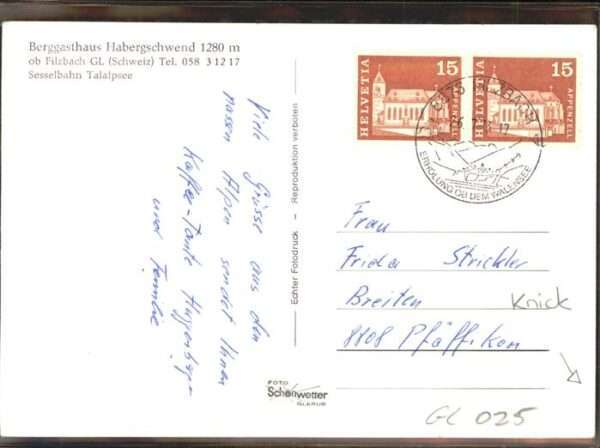 Berggasthaus Habergschwend 1280 m
ob Filzbach GL (Schweiz) Tel. 058 3 12 17
Sesselbahn Talalpsee
Viele Grüsse aus den
nassen Alpen sendet Ihnen
Kaffee-Tante
und Familie
Echter Fotodruck - Reproduktion verboten
HELVETIA
15
APPENZELL
HELVETIA
15
APPENZELL
FILZBACH
ERHOLUNG OB DEM WALENSEE
Frau
Frieda Strickler
Breiten
8808 Pfäffikon
Knick
FOTO
Schönwetter
GLARUS
GL 025